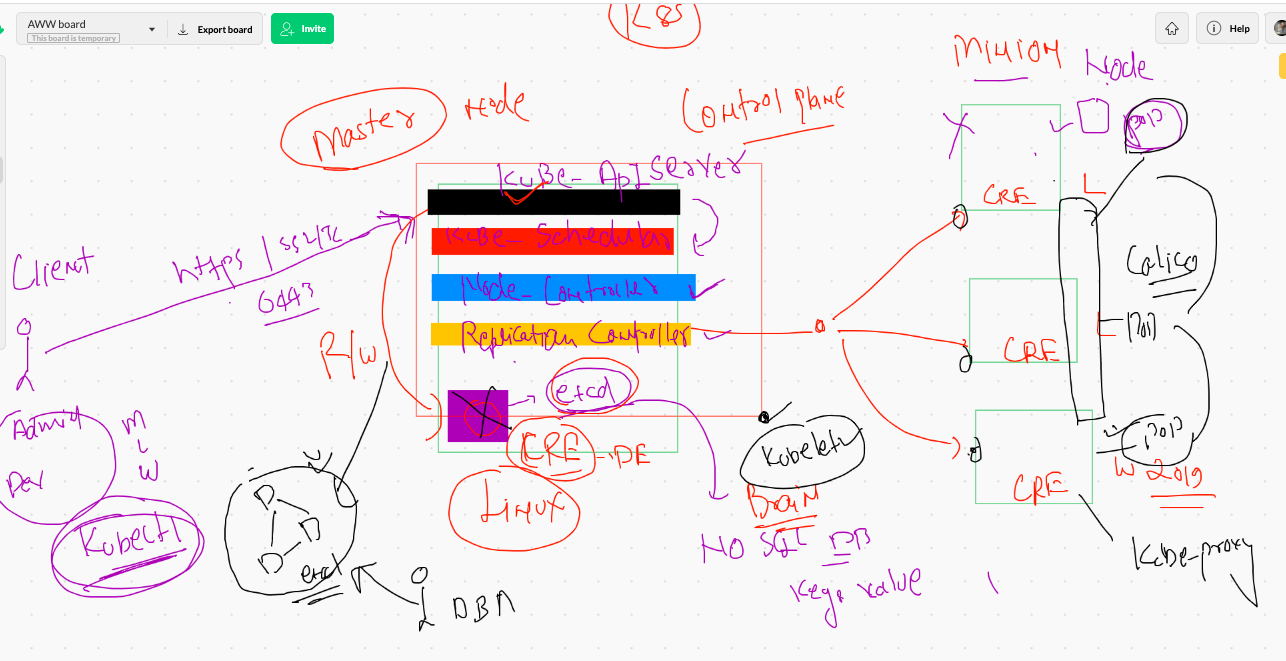 AWW board
This board is temporary
Export board
Invite
Help
K8S
Master
Node
Control plane
MINION
Node
POD
Kube-ApI Server
Kube-
Node-Controller
Replication Controller
etcd
CRE
-DE
Linux
Client
https
6443
R/W
Admin
Dev
M
L
W
Kubectl
D
D
D
etcd
DBA
Kubelet
Brain
NO SQL DB
Key, value
CRE
L
Calico
CRE
L
POD
CRE
POD
W 2019
Kube-proxy